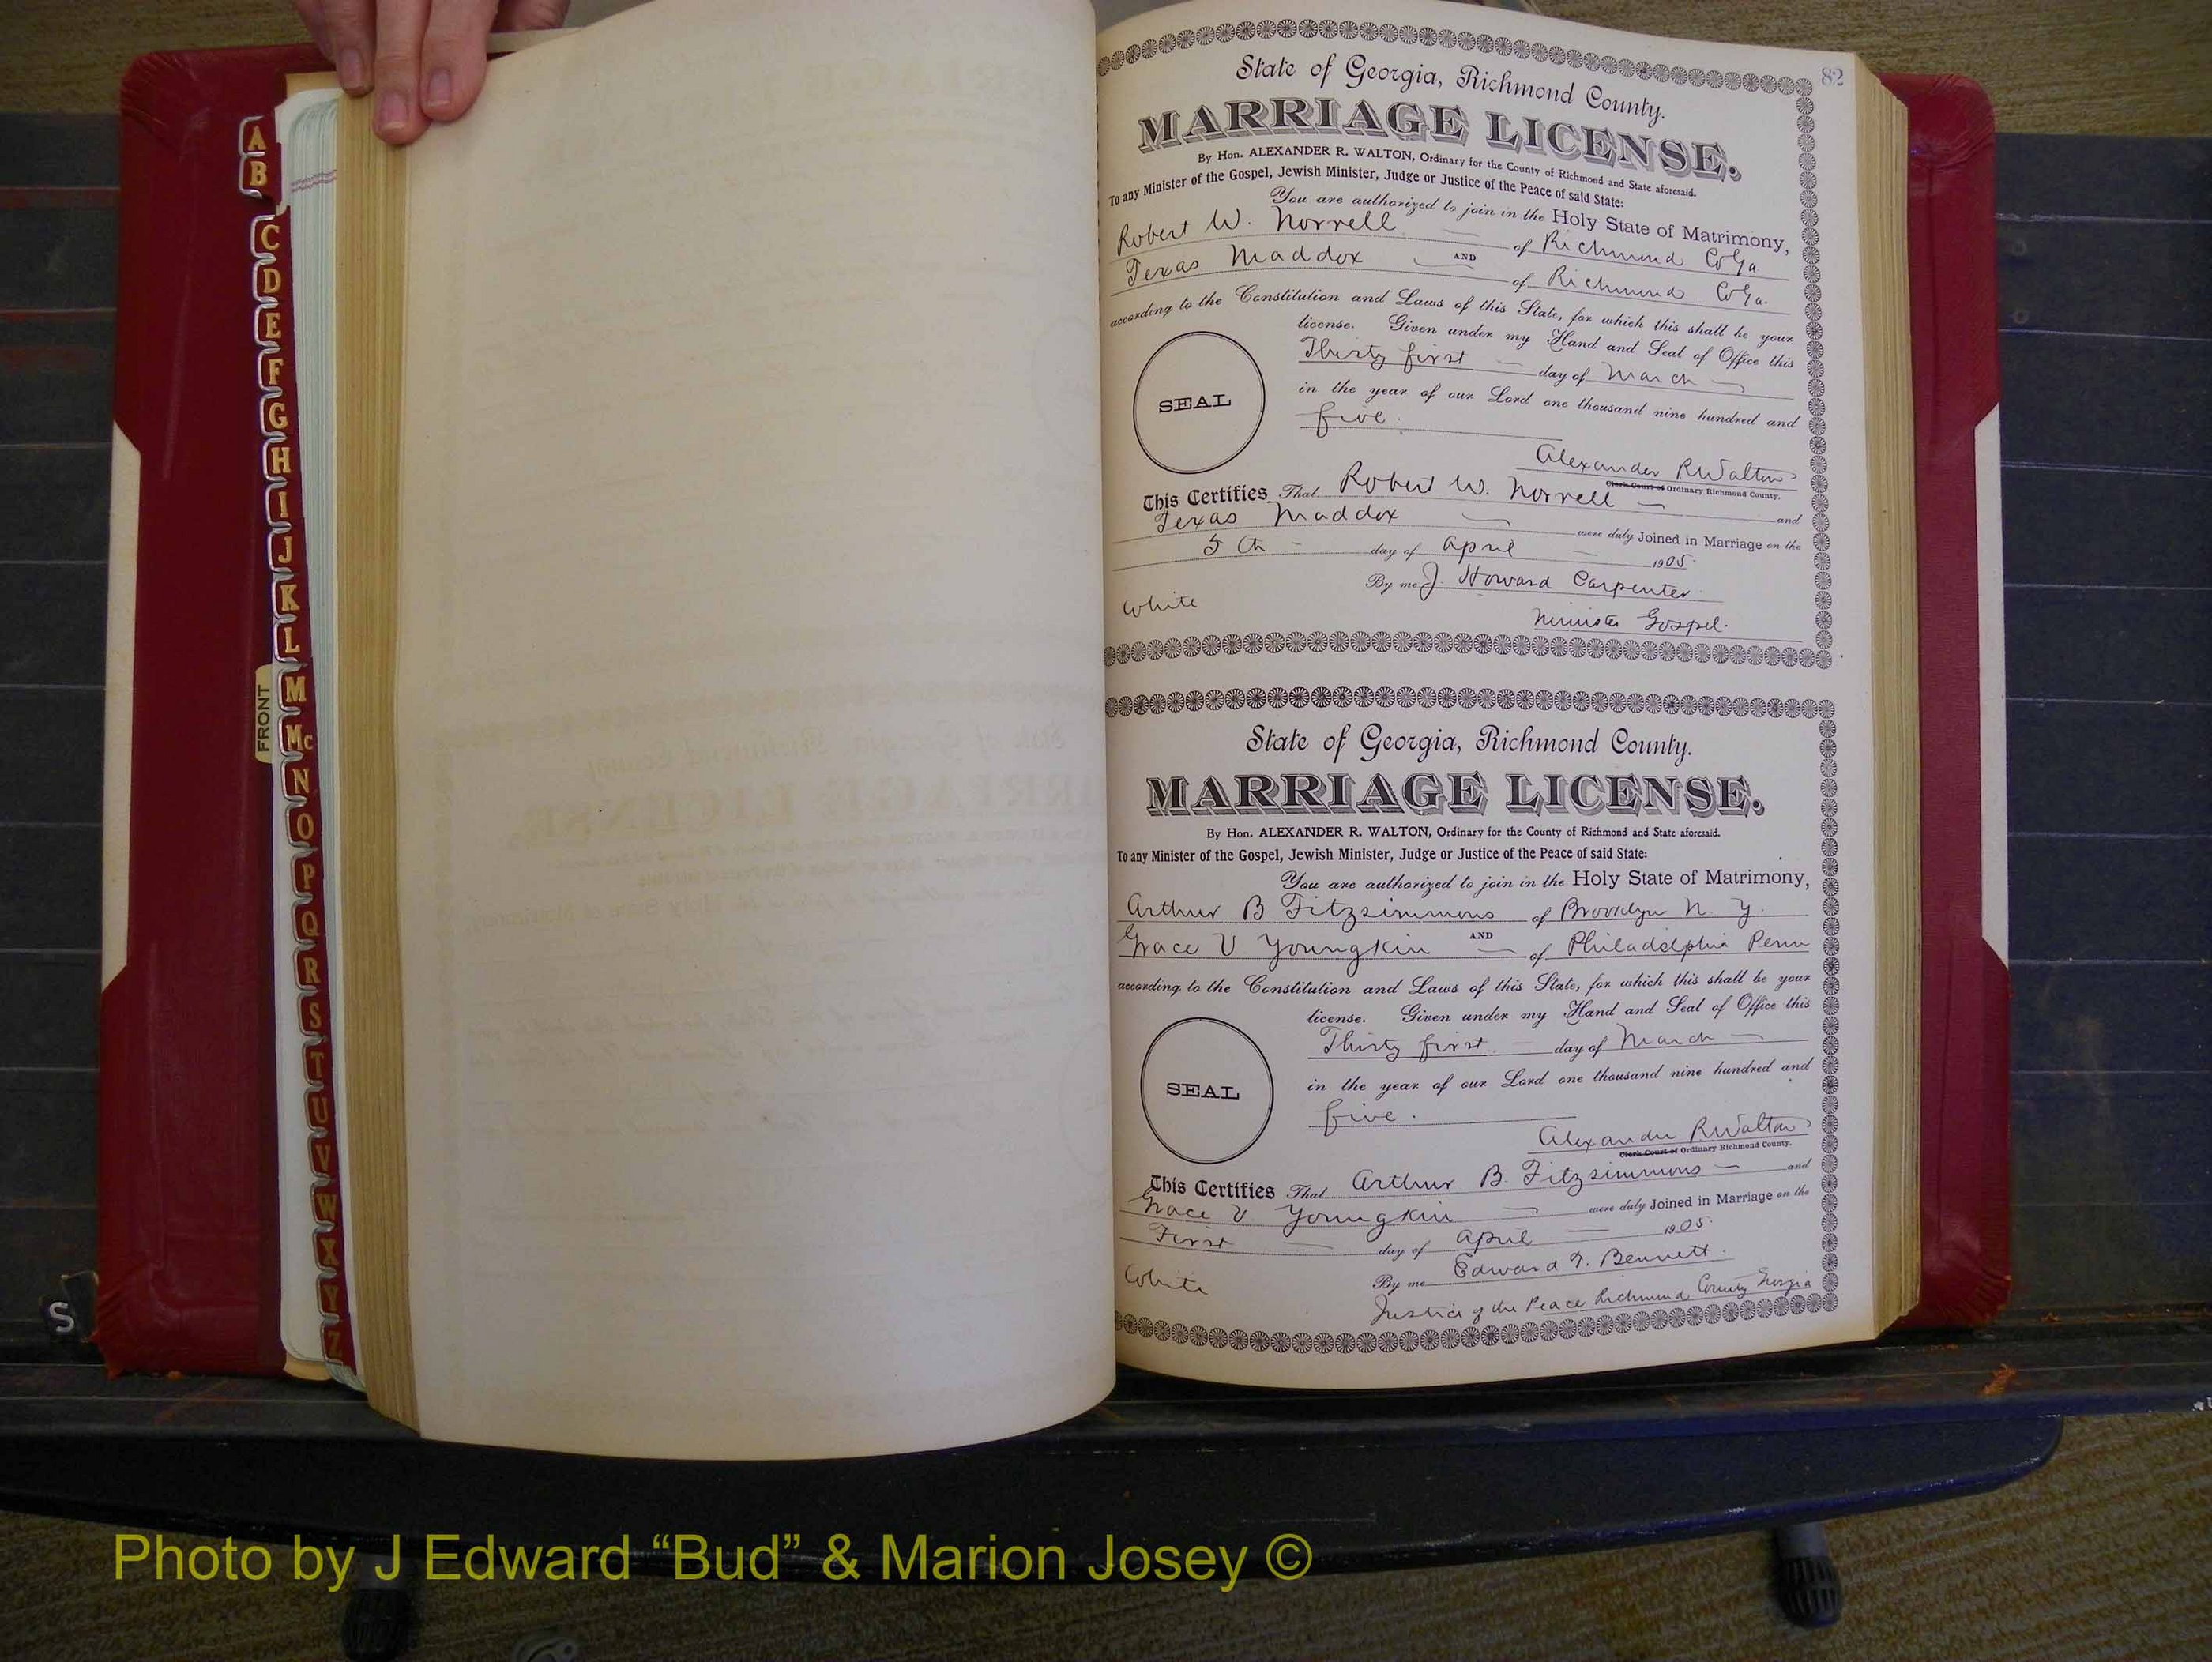 A
B
C
D
E
F
G
H
I
J
K
L
M
Mc
N
O
P
Q
R
S
T
U
V
W
X
Y
Z
FRONT
S
82
State of Georgia, Richmond County.
MARRIAGE LICENSE.
By Hon. ALEXANDER R. WALTON, Ordinary for the County of Richmond and State aforesaid.
To any Minister of the Gospel, Jewish Minister, Judge or Justice of the Peace of said State:
You are authorized to join in the Holy State of Matrimony,
Robert W. Norrell of Richmond Co Ga.
AND
Texas Maddox of Richmond Co Ga.
according to the Constitution and Laws of this State, for which this shall be your
license. Given under my Hand and Seal of Office this
Thirty first day of March
in the year of our Lord one thousand nine hundred and
five.
SEAL
Alexander R Walton
Clerk Court of Ordinary Richmond County.
This Certifies That Robert W. Norrell and
Texas Maddox were duly Joined in Marriage on the
5th day of April 1905.
By me J. Howard Carpenter
White
Minister Gospel.
State of Georgia, Richmond County.
MARRIAGE LICENSE.
By Hon. ALEXANDER R. WALTON, Ordinary for the County of Richmond and State aforesaid.
To any Minister of the Gospel, Jewish Minister, Judge or Justice of the Peace of said State:
You are authorized to join in the Holy State of Matrimony,
Arthur B Fitzsimmons of Brooklyn N. Y.
AND
Grace V Youngkin of Philadelphia Penn
according to the Constitution and Laws of this State, for which this shall be your
license. Given under my Hand and Seal of Office this
Thirty first day of March
in the year of our Lord one thousand nine hundred and
five.
SEAL
Alexander R Walton
Clerk Court of Ordinary Richmond County.
This Certifies That Arthur B. Fitzsimmons and
Grace V Youngkin were duly Joined in Marriage on the
First day of April 1905.
By me Edward I. Bennett.
White
Justice of the Peace Richmond County Georgia
Photo by J Edward “Bud” & Marion Josey ©